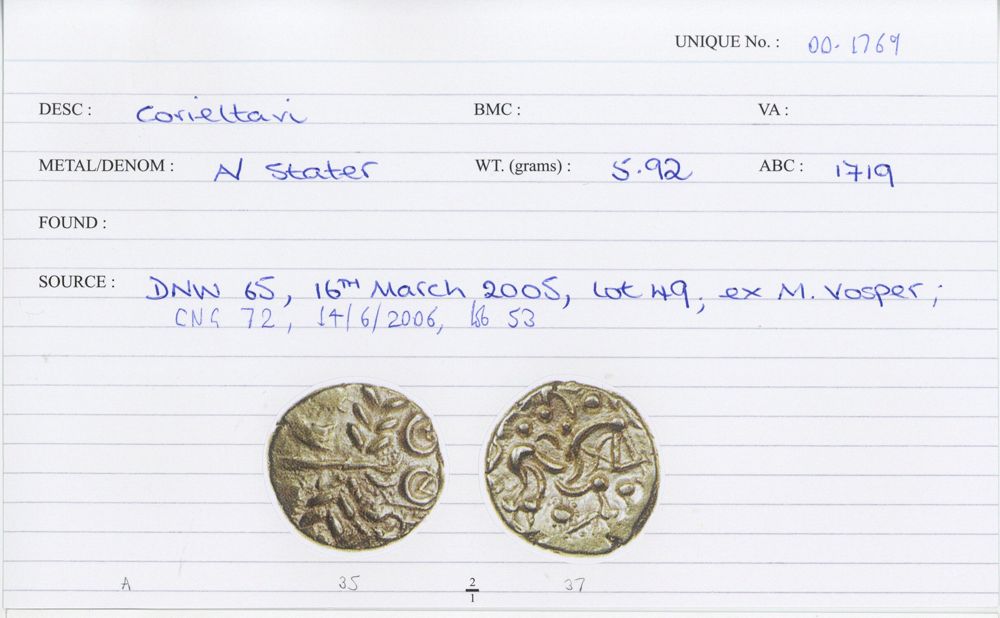 UNIQUE No. : 00-1769
DESC : Corieltavi BMC : VA :
METAL/DENOM : A/ Stater WT. (grams) : 5.92 ABC : 1719
FOUND :
SOURCE : DNW 65, 16TH March 2005, Lot 49, ex M. Vosper;
CNG 72, 14/6/2006, lot 53
A 35 2/1 37